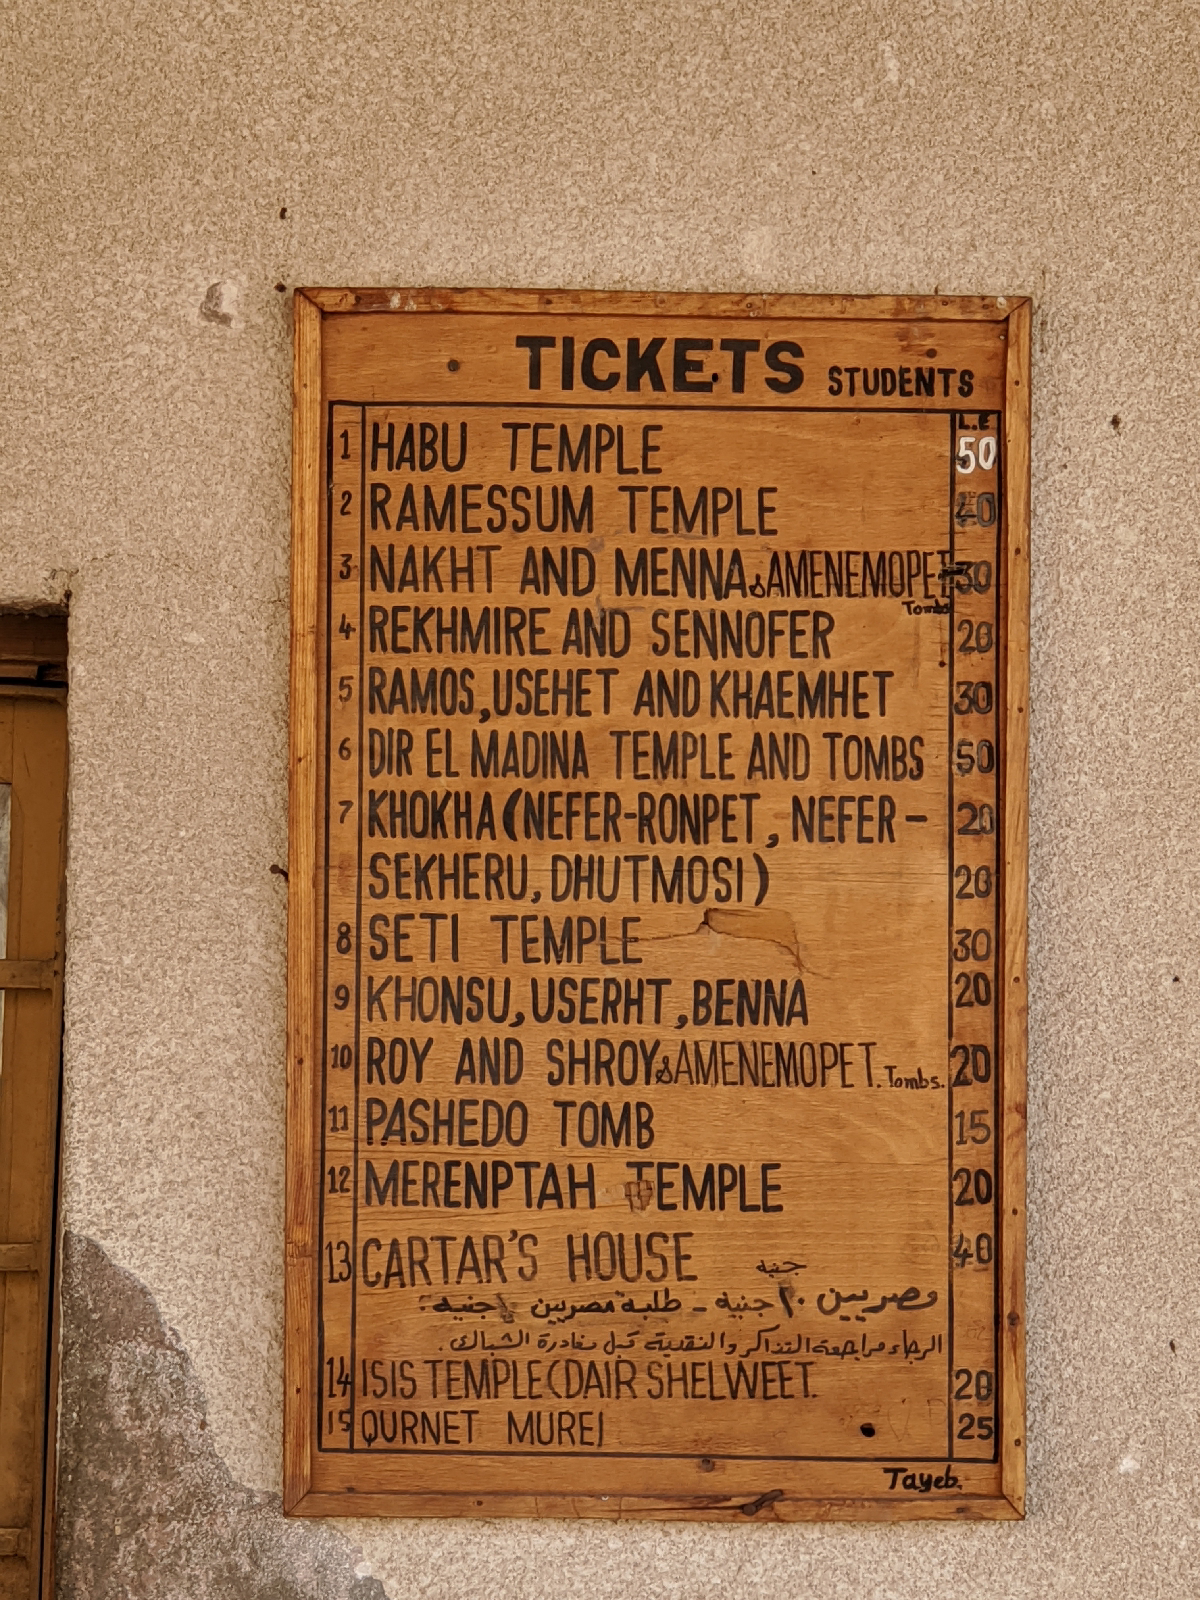 TICKETS STUDENTS
L.E
1 HABU TEMPLE 50
2 RAMESSUM TEMPLE 40
3 NAKHT AND MENNA & AMENEMOPET 30
Tombs
4 REKHMIRE AND SENNOFER 20
5 RAMOS, USEHET AND KHAEMHET 30
6 DIR EL MADINA TEMPLE AND TOMBS 50
7 KHOKHA (NEFER-RONPET, NEFER- 20
SEKHERU, DHUTMOSI) 20
8 SETI TEMPLE 30
9 KHONSU, USERHT, BENNA 20
10 ROY AND SHROY & AMENEMOPET. Tombs. 20
11 PASHEDO TOMB 15
12 MERENPTAH TEMPLE 20
13 CARTAR'S HOUSE 40
جنيه
مصريين جنية - طلبة مصريين جنية
الرجاء مراجعة التذاكر والنقدية قبل مغادرة الشباك.
14 ISIS TEMPLE (DAIR SHELWEET. 20
15 QURNET MUREI 25
Tayeb.